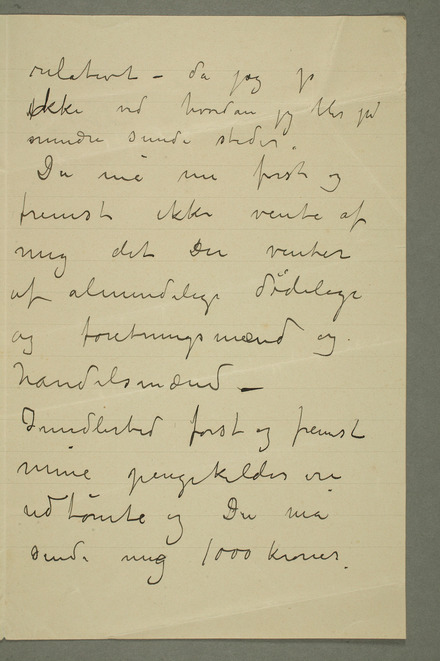 relativt – da jeg jo
ikke ved hvordan jeg blir på
mindre sunde steder.
Du må nu først og
fremst ikke vente af
mig det Du venter
af almindelige dödelige
og foretningsmænd og
handelsmænd –
Imidlertid først og fremst
mine pengekilder er
udtömte og Du må
sende mig 1000 kroner.